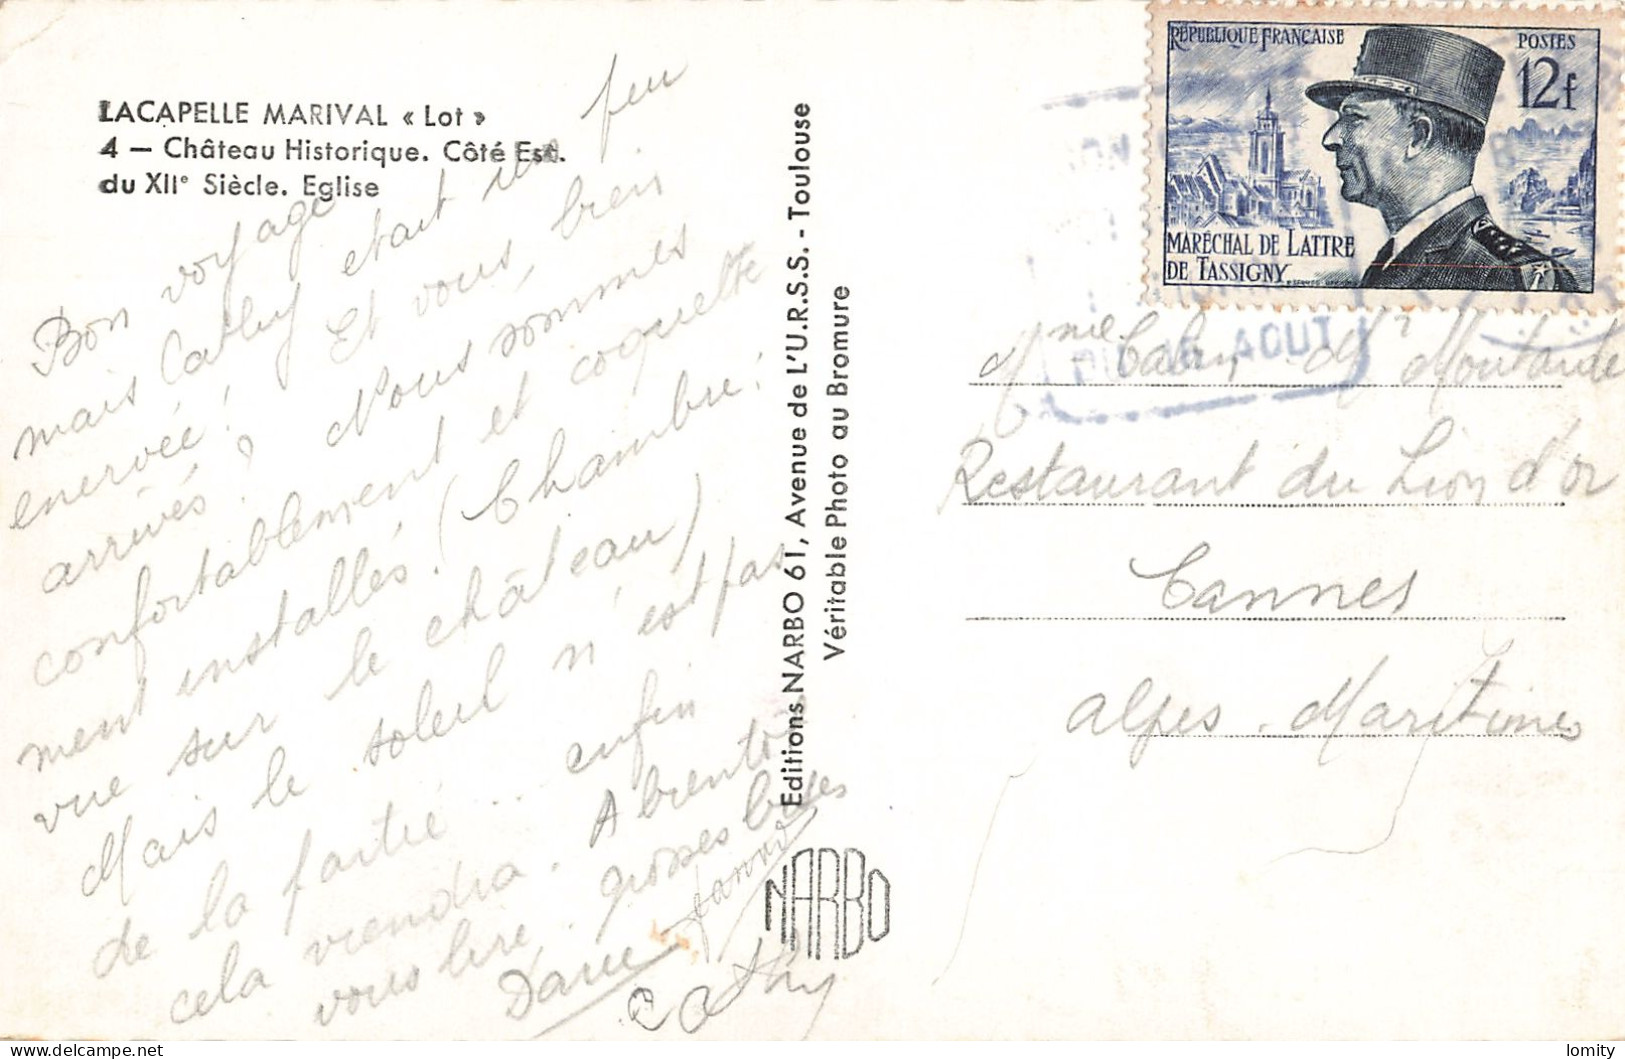 LACAPELLE MARIVAL « Lot »
4 — Château Historique. Côté Est.
du XIIe Siècle. Eglise
Bon voyage
mais Cathy etait un peu
enervée! Et vous, bien
arrivés? Nous sommes
confortablement et coquette
ment installés. (Chambre:
vue sur le château)
Mais le soleil n'est pas
de la partie... enfin
cela viendra. A bientôt
vous lire. grosses bises
Cathy
Editions NARBO 61, Avenue de L'U.R.S.S. - Toulouse
Véritable Photo au Bromure
NARBO
RÉPUBLIQUE FRANÇAISE POSTES
12f
MARÉCHAL DE LATTRE
DE TASSIGNY
AOUT
Mme
Restaurant du Lion d'or
Cannes
Alpes. Maritimes
lomity